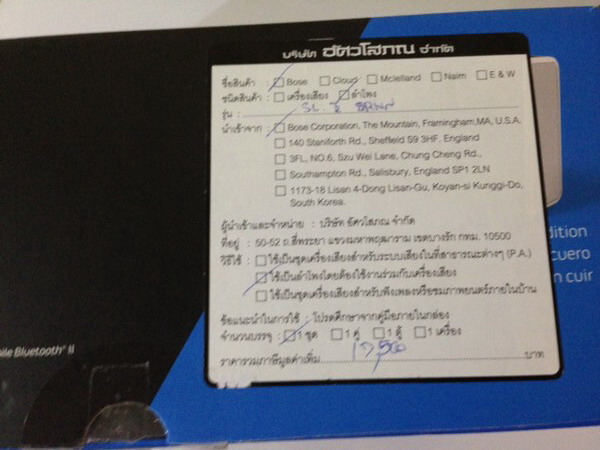 บริษัท อัศวโสภณ จำกัด
ชื่อสินค้า : Bose Cloud Mclelland Naim E & W
ชนิดสินค้า : เครื่องเสียง ลำโพง
รุ่น : SL. II
นำเข้าจาก : Bose Corporation, The Mountain, Framingham,MA, U.S.A.
140 Staniforth Rd., Sheffield S9 3HF. England
3FL, NO.6, Szu Wei Lane, Chung Cheng Rd.,
Southampton Rd., Salisbury, England SP1 2LN
1173-18 Lisan 4-Dong Lisan-Gu, Koyan-si Kunggi-Do,
South Korea.
ผู้นำเข้าและจำหน่าย : บริษัท อัศวโสภณ จำกัด
ที่อยู่ : 50-52 ถ.สี่พระยา แขวงมหาพฤฒาราม เขตบางรัก กทม. 10500
วิธีใช้ : ใช้เป็นชุดเครื่องเสียงสำหรับระบบเสียงในที่สาธารณะต่างๆ (P.A.)
ใช้เป็นลำโพงโดยต้องใช้งานร่วมกับเครื่องเสียง
ใช้เป็นชุดเครื่องเสียงสำหรับฟังเพลงหรือชมภาพยนตร์ภายในบ้าน
ข้อแนะนำในการใช้ : โปรดศึกษาจากคู่มือภายในกล่อง
จำนวนบรรจุ : 1 ชุด 1 คู่ 1 ตู้ 1 เครื่อง
ราคารวมภาษีมูลค่าเพิ่ม 17,500 บาท
dition
cuero
n cuir
ile Bluetooth® II